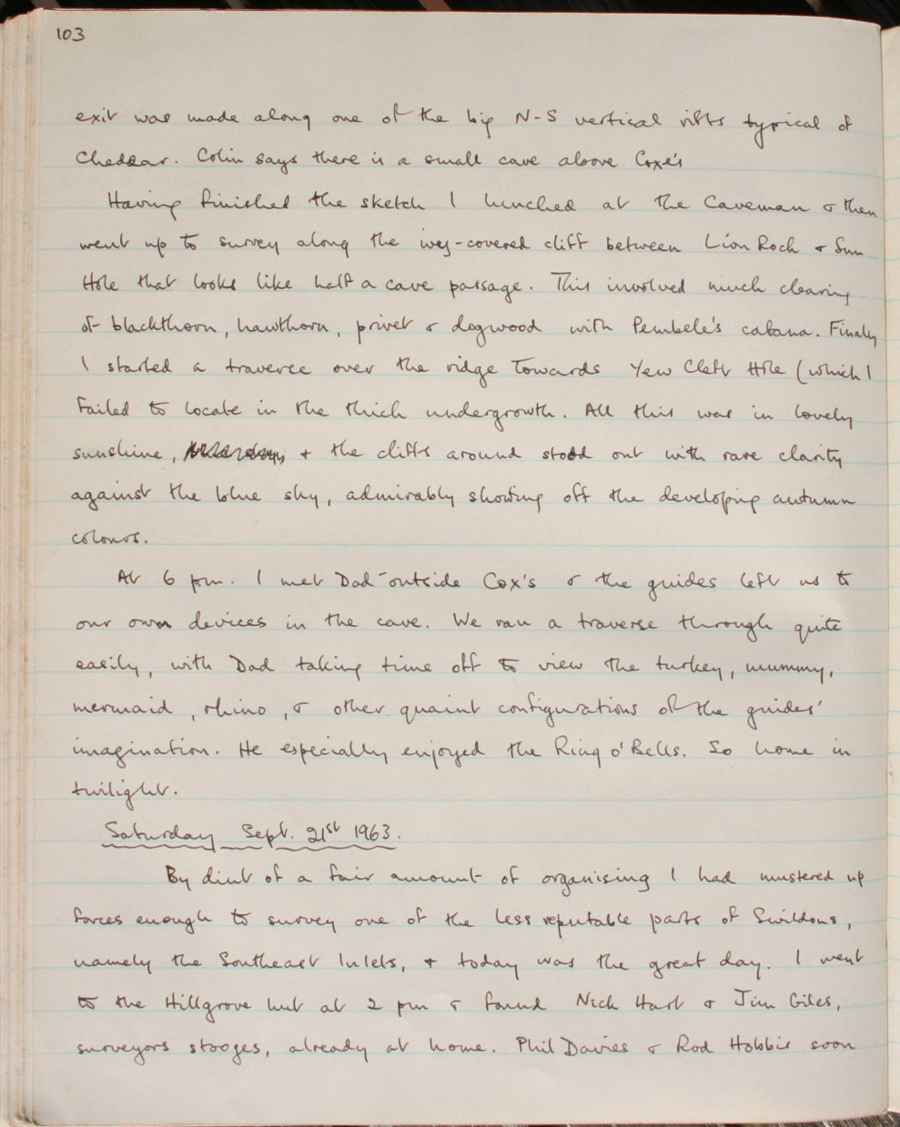 103
exit was made along one of the big N-S vertical rifts typical of
Cheddar. Colin says there is a small cave above Coxe's
Having finished the sketch I lunched at the Caveman & then
went up to survey along the ivy-covered cliff between Lion Rock & Sun
Hole that looks like half a cave passage. This involved much clearing
of blackthorn, hawthorn, privet & dogwood with Pembele's catana. Finally
I started a traverse over the ridge towards Yew Cleft Hole (which I
failed to locate in the thick undergrowth. All this was in lovely
sunshine, & the cliffs around stood out with rare clarity
against the blue sky, admirably showing off the developing autumn
colours.
At 6 pm. I met Dad outside Cox's & the guides left us to
our own devices in the cave. We ran a traverse through quite
easily, with Dad taking time off to view the turkey, mummy,
mermaid, rhino, & other quaint configurations of the guides'
imagination. He especially enjoyed the Ring o' Bells. So home in
twilight.
Saturday Sept. 21st 1963.
By dint of a fair amount of organising I had mustered up
forces enough to survey one of the less reputable parts of Swildons,
namely the Southeast Inlets, & today was the great day. I went
to the Hillgrove hut at 2 pm & found Nick Hart & Jim Giles,
surveyors stooges, already at home. Phil Davies & Rod Hobbis soon